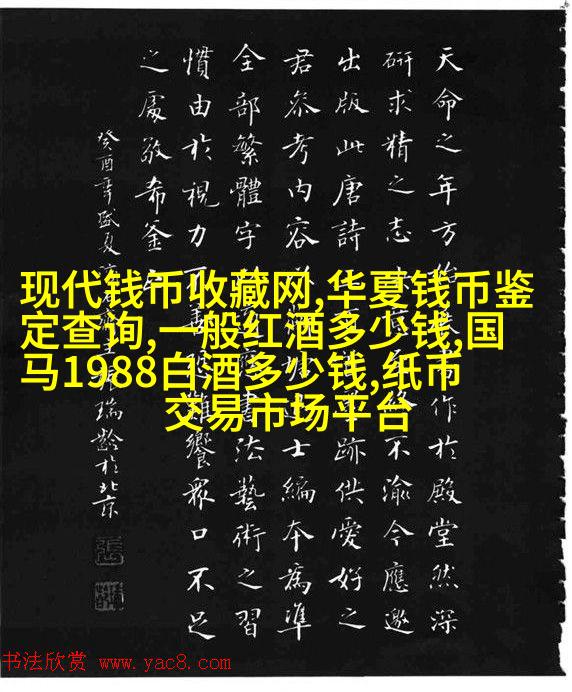 天命之年方作於殿堂然深
研求精之志不渝今應邀
出版此唐詩跡供愛好之
君參考內容士編本為準
全部繁體字法藝術之習
慣由於視力難饗眾口不足
之處敬希
癸酉年盛夏瑞齡於北京
现代钱币收藏网,华夏钱币鉴
定查询,一般红酒多少钱,国
马1988白酒多少钱,纸币
交易市场平台
书法欣赏 www.yac8.com